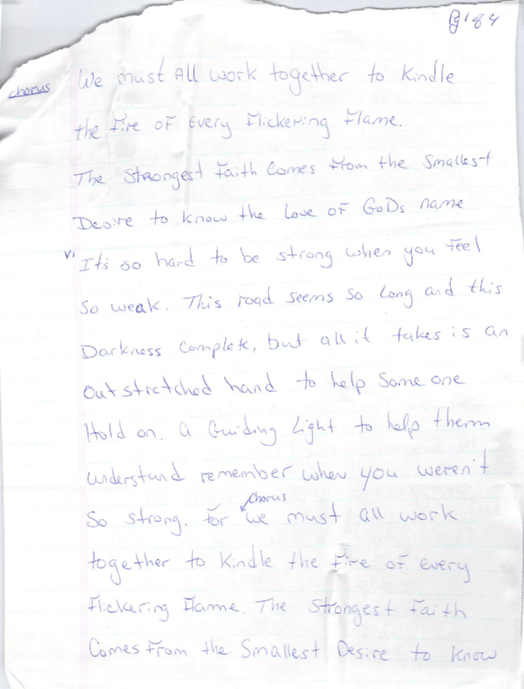 Pg 184
chorus We must All work together to Kindle
the Fire of Every Flickering Flame.
The Strongest Faith Comes From the Smallest
Desire to know the Love of GoDs name
V1 It's so hard to be strong when you Feel
So weak. This road seems so Long and this
Darkness Complete, but all it takes is an
Outstretched hand to help Some one
Hold on. A Guiding Light to help them
understand remember when you weren't
Chorus
So strong. For We must all work
together to Kindle the Fire of every
Flickering Flame. The Strongest Faith
Comes From the Smallest Desire to know